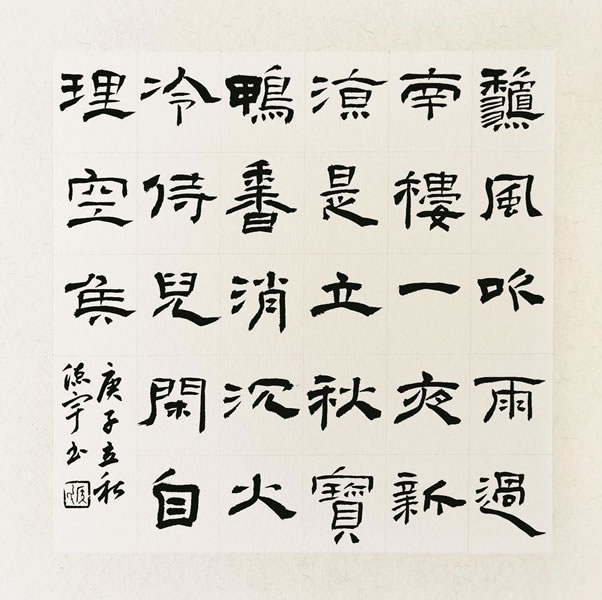 龝風吹雨過
南樓一夜新
涼是立秋寶
鴨香消沉火
冷侍兒閑自
理空矦
庚子立秋
德宇书